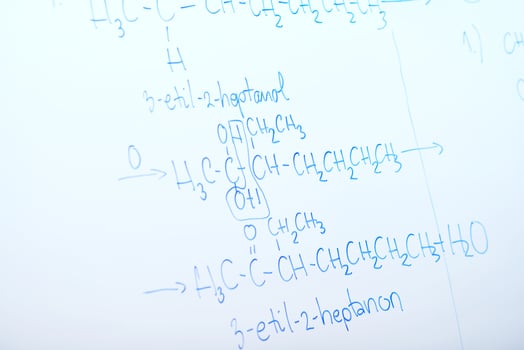 H₃C - C - CH - CH₂CH₂CH₂CH₃
H
3-etil-2-heptanol
OH CH₂CH₃
O → H₃C - C - CH - CH₂CH₂CH₂CH₃ →
OH
O CH₂CH₃
→ H₃C - C - CH - CH₂CH₂CH₂CH₃ + H₂O
3-etil-2-heptanon
1.) CH